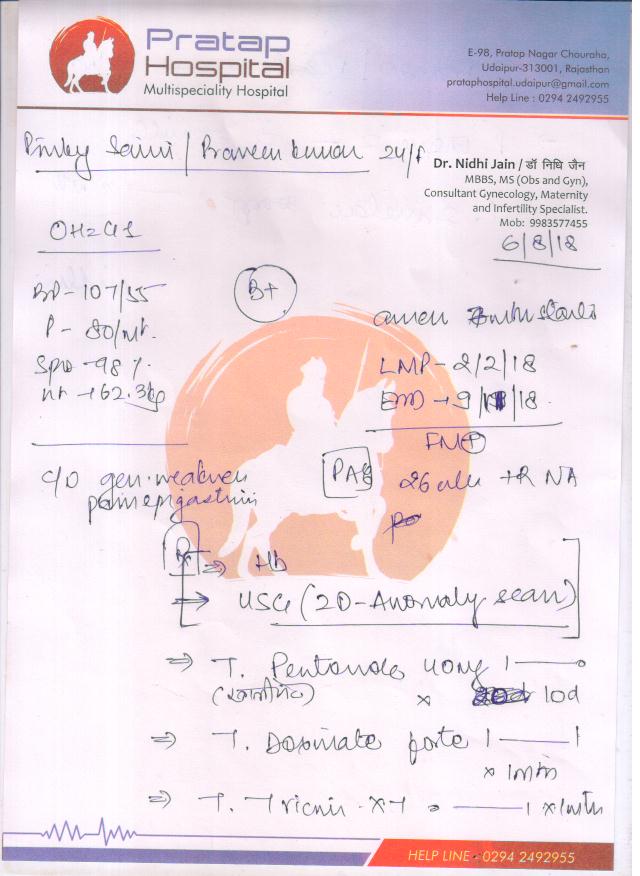 Pratap
Hospital
Multispeciality Hospital
E-98, Pratap Nagar Chouraha,
Udaipur-313001, Rajasthan
prataphospital.udaipur@gmail.com
Help Line : 0294 2492955
Pinky Saini / Praveen Kumar 24/F
Dr. Nidhi Jain / डॉ निधि जैन
MBBS, MS (Obs and Gyn),
Consultant Gynecology, Maternity
and Infertility Specialist.
Mob: 9983577455
6/8/18
BP - 107/55
B+
P - 80/mt.
SpO2 - 98 %
LMP - 2/2/18
wt → 62.3kg
EDD → 9/11/18
FM+
c/o gen. weakness
P/A
26
pain epigastrium
Rx ⇒ Hb
⇒ USG (2D-Anomaly scan)
⇒ T. 40mg 1 —— 0
x 10d
⇒ T. forte 1 —— 1
x 1mth
⇒ T. XT 0 —— 1 x 1mth
HELP LINE - 0294 2492955